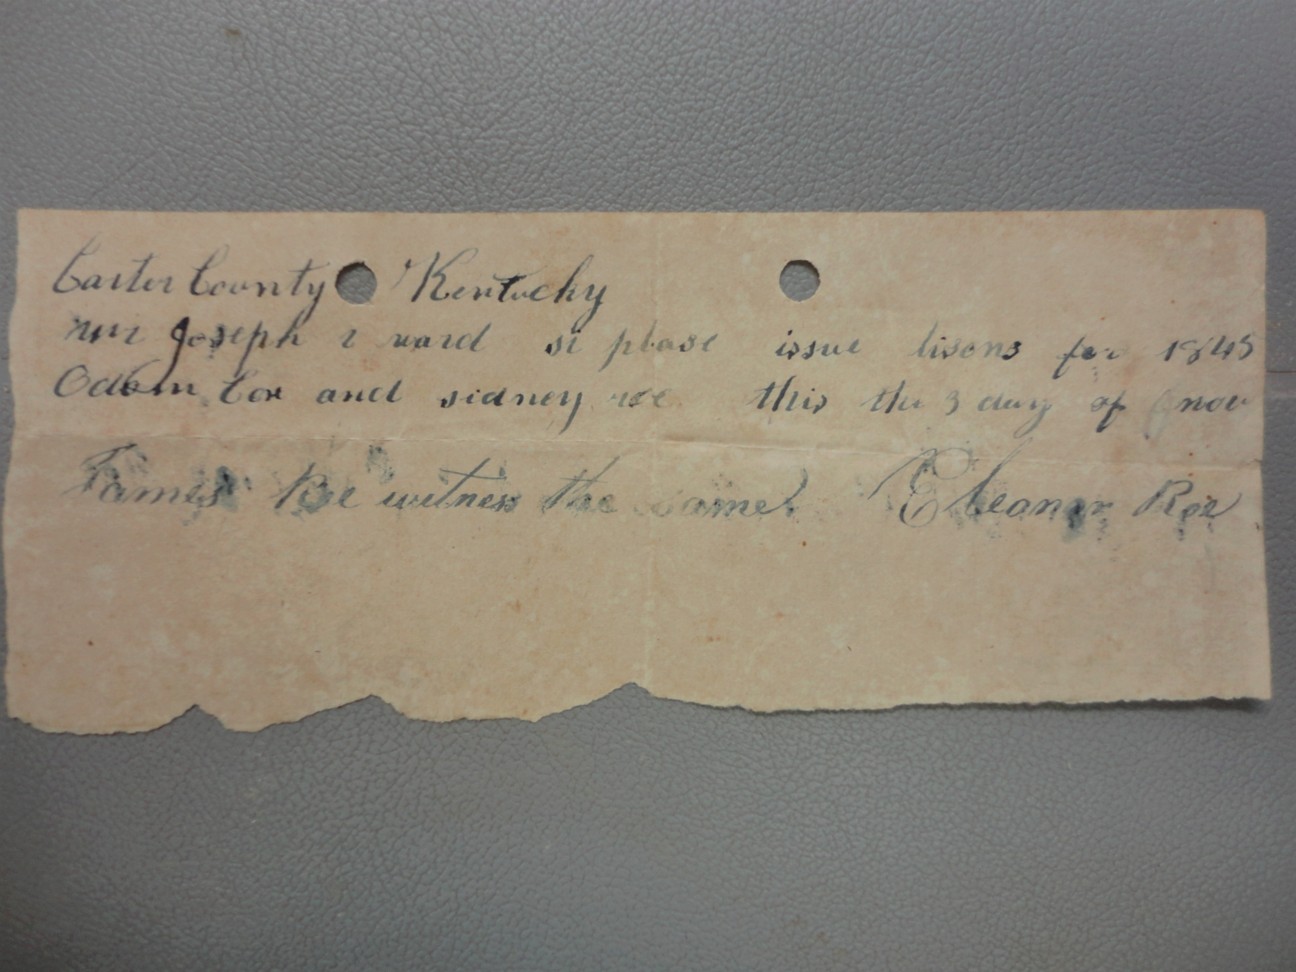 Carter County Kentucky
mr Joseph r ward si plase issue lisons for 1845
Odom Cox and sidney roe this the 3 day of nov
James Roe witness the same Eleanor Roe